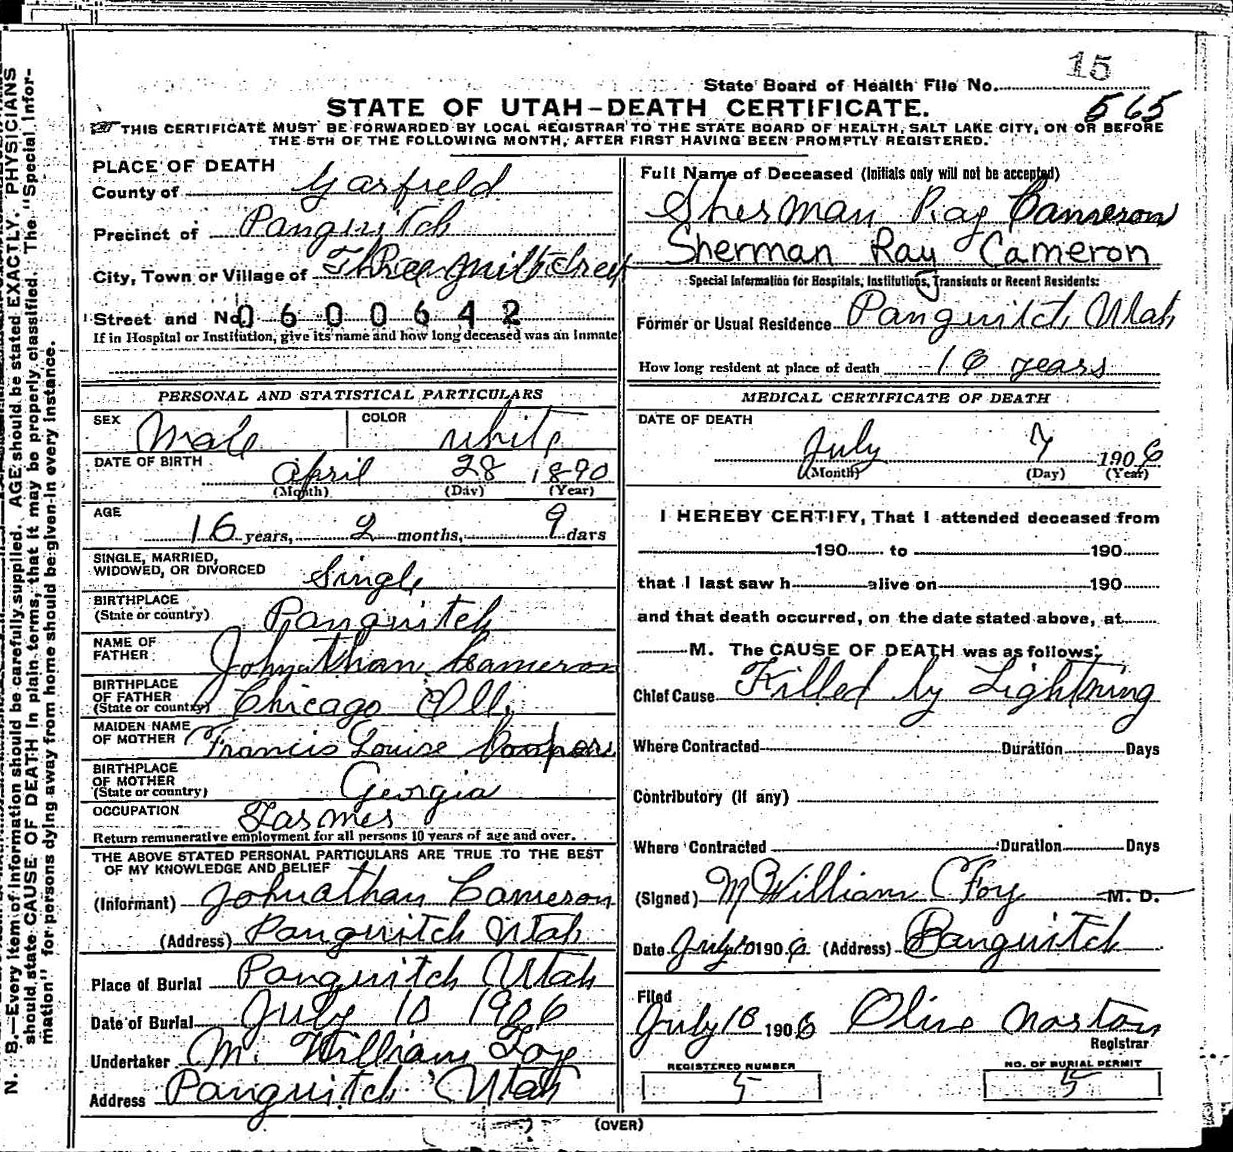 15
State Board of Health File No.
565
STATE OF UTAH—DEATH CERTIFICATE.
THIS CERTIFICATE MUST BE FORWARDED BY LOCAL REGISTRAR TO THE STATE BOARD OF HEALTH, SALT LAKE CITY, ON OR BEFORE
THE 5TH OF THE FOLLOWING MONTH, AFTER FIRST HAVING BEEN PROMPTLY REGISTERED.
PLACE OF DEATH
County of Garfield
Precinct of Panguitch
City, Town or Village of Three mile creek
Street and No. 0600642
If in Hospital or Institution, give its name and how long deceased was an Inmate
PERSONAL AND STATISTICAL PARTICULARS
SEX Male COLOR white
DATE OF BIRTH April 28 1890
(Month) (Day) (Year)
AGE
16 years, 2 months, 9 days
SINGLE, MARRIED,
WIDOWED, OR DIVORCED Single
BIRTHPLACE
(State or country) Panguitch
NAME OF
FATHER Johnathan Cameron
BIRTHPLACE
OF FATHER
(State or country) Chicago Ill.
MAIDEN NAME
OF MOTHER Francis Louise
BIRTHPLACE
OF MOTHER
(State or country) Georgia
OCCUPATION Farmer
Return remunerative employment for all persons 10 years of age and over.
THE ABOVE STATED PERSONAL PARTICULARS ARE TRUE TO THE BEST
OF MY KNOWLEDGE AND BELIEF
(Informant) Johnathan Cameron
(Address) Panguitch Utah
Place of Burial Panguitch Utah
Date of Burial July 10 1906
Undertaker M. William Foy
Address Panguitch Utah
Full Name of Deceased (Initials only will not be accepted)
Sherman Ray Cameron
Sherman Ray Cameron
Special Information for Hospitals, Institutions, Transients or Recent Residents:
Former or Usual Residence Panguitch Utah
How long resident at place of death 16 years
MEDICAL CERTIFICATE OF DEATH
DATE OF DEATH
July 7 1906
(Month) (Day) (Year)
I HEREBY CERTIFY, That I attended deceased from
190 to 190
that I last saw h alive on 190
and that death occurred, on the date stated above, at
M. The CAUSE OF DEATH was as follows:
Chief Cause Killed by Lightning
Where Contracted Duration Days
Contributory (if any)
Where Contracted Duration Days
(Signed) M William Foy M. D.
Date July 10 1906 (Address) Panguitch
Filed
July 10 1906 Olive Norton
Registrar
REGISTERED NUMBER
5
NO. OF BURIAL PERMIT
5
(OVER)
N. B.—Every item of information should be carefully supplied. AGE should be stated EXACTLY. PHYSICIANS
should state CAUSE OF DEATH in plain terms, that it may be properly classified. The "Special Infor-
mation" for persons dying away from home should be given in every instance.